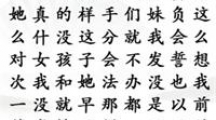 她真的样手们妹负这
么什没这分就我会么
对女孩子会不发誓想
次我和她法办没也我
一没就早那都是以前